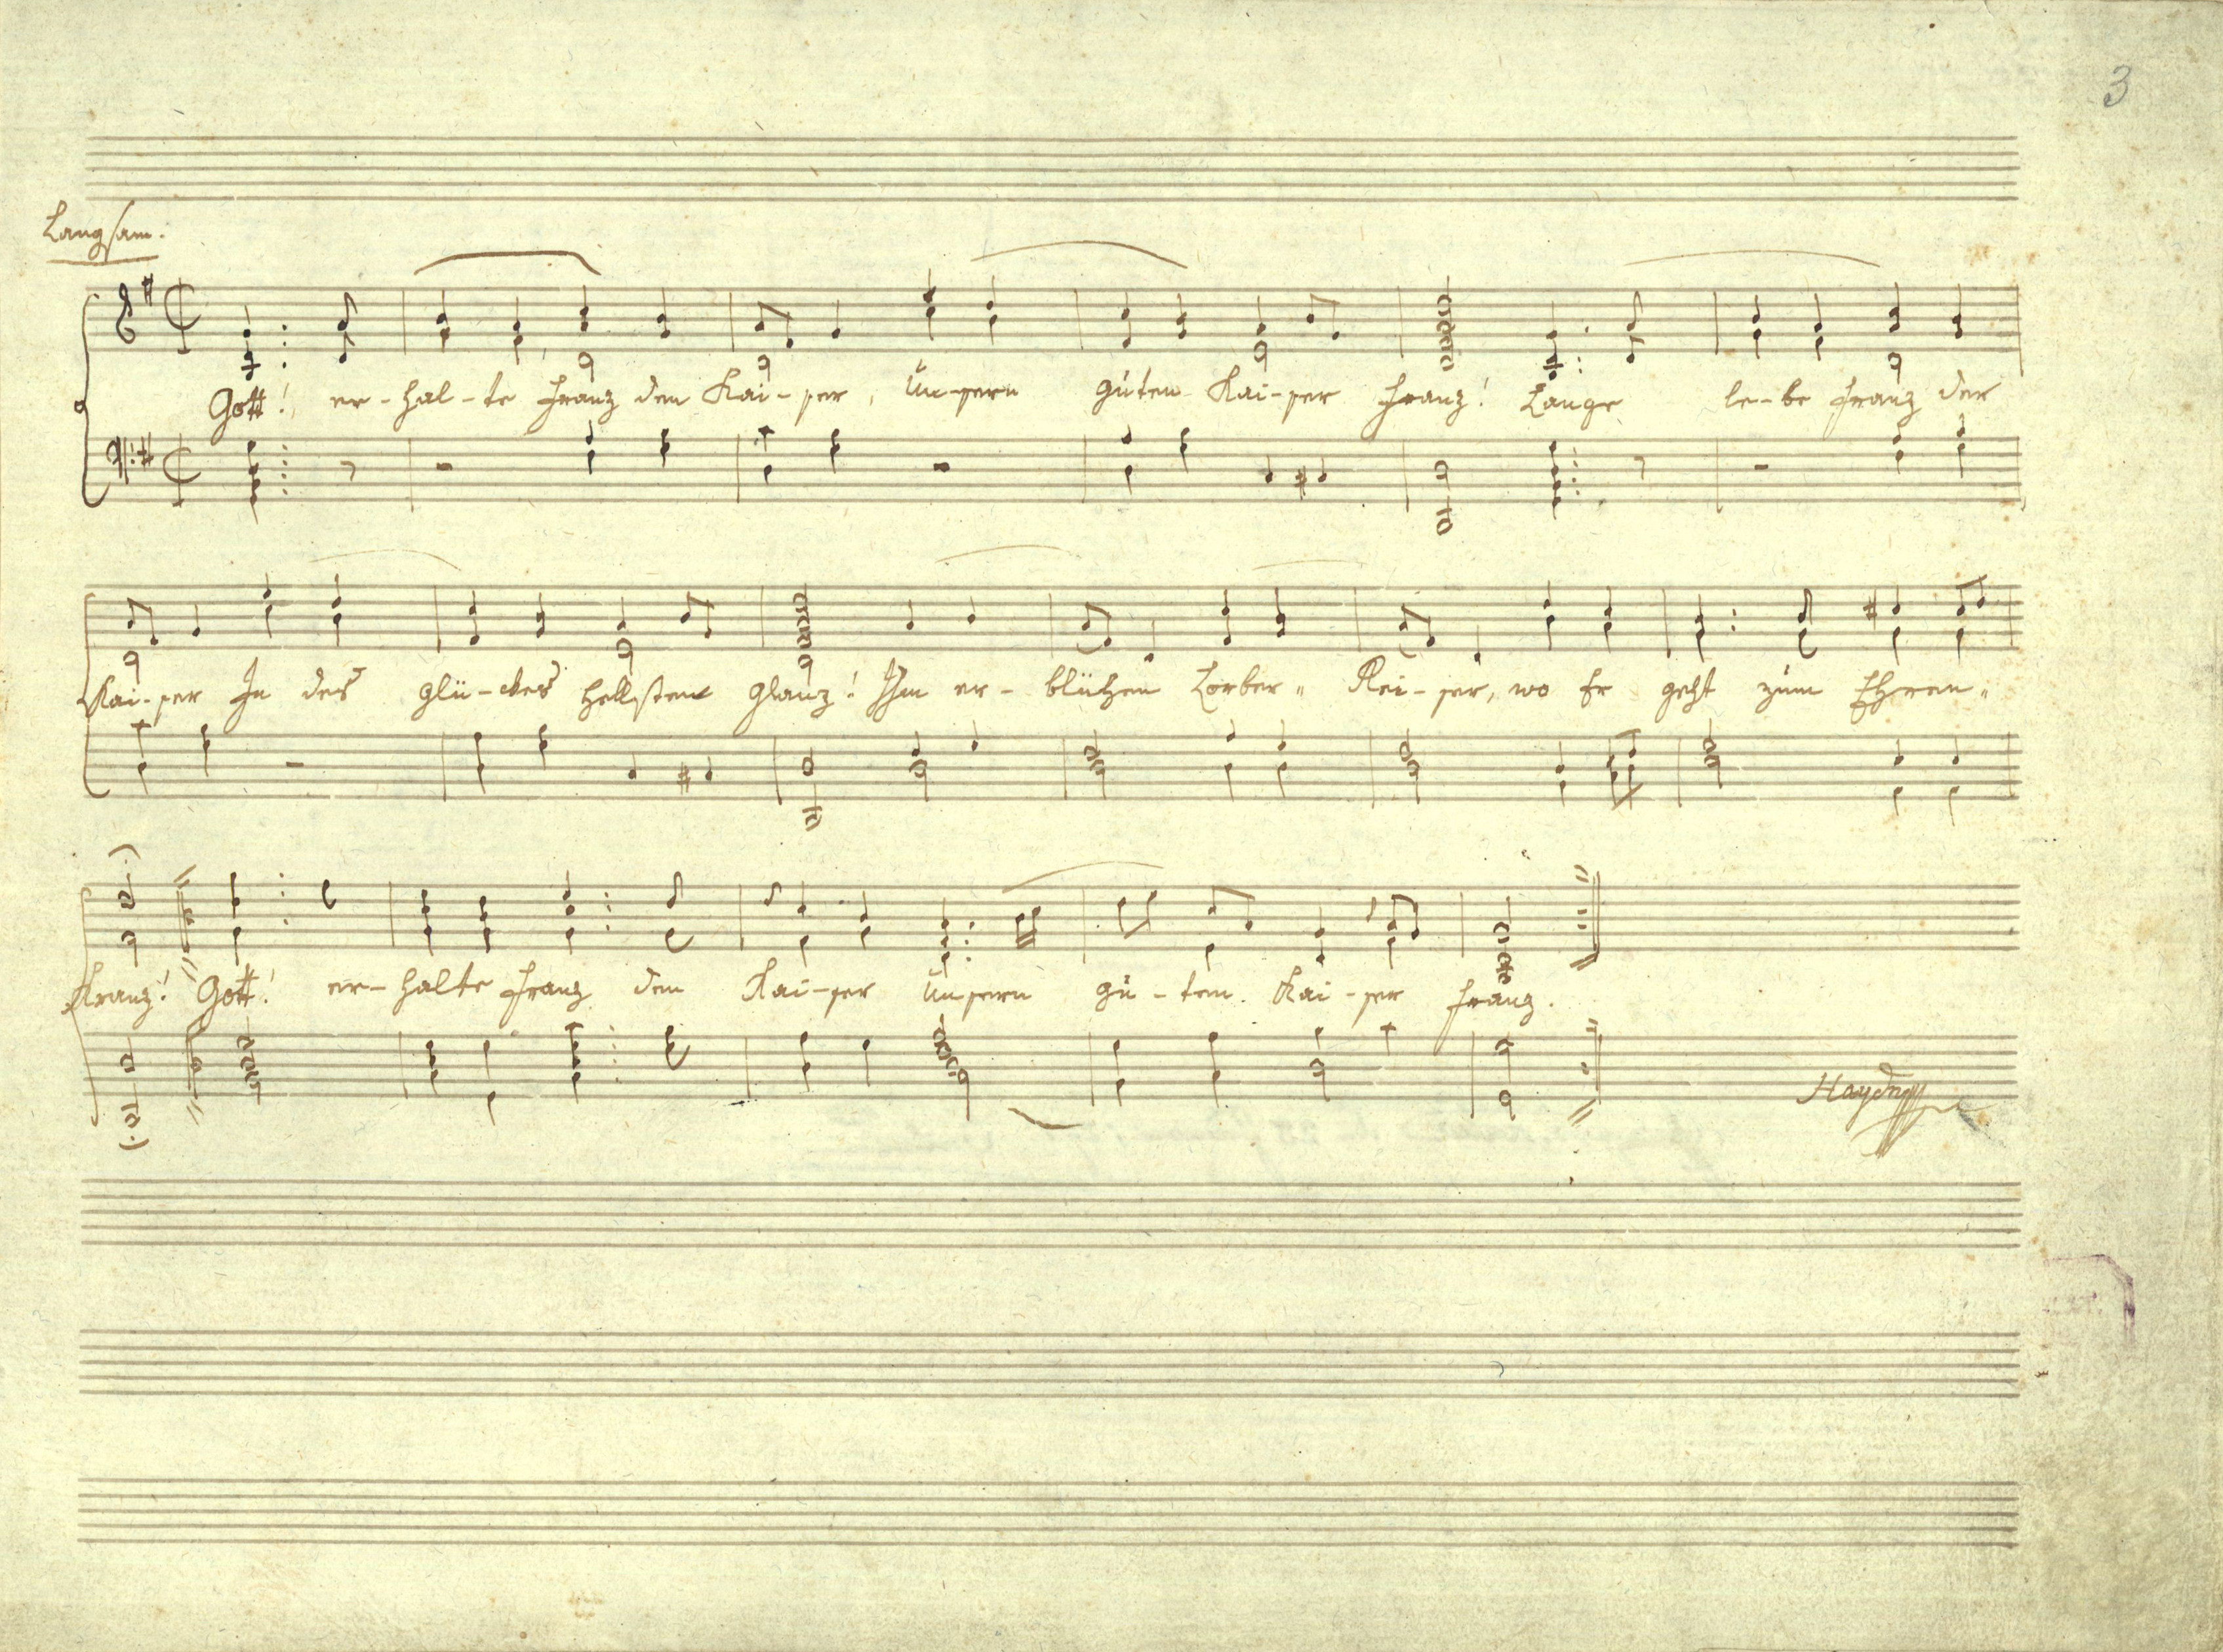 3
Langsam.
Gott! er-hal-te Franz den Kai-ser, Un-sern guten Kai-ser Franz! Lange le-be Franz der
Kai-ser In des Glü-ckes hellsten Glanz! Ihm er-blühen Lorber„ Rei-ser, wo Er geht zum Ehren„
Kranz! Gott! er-halte Franz den Kai-ser Unsern gu-ten Kai-ser Franz.
Haydn